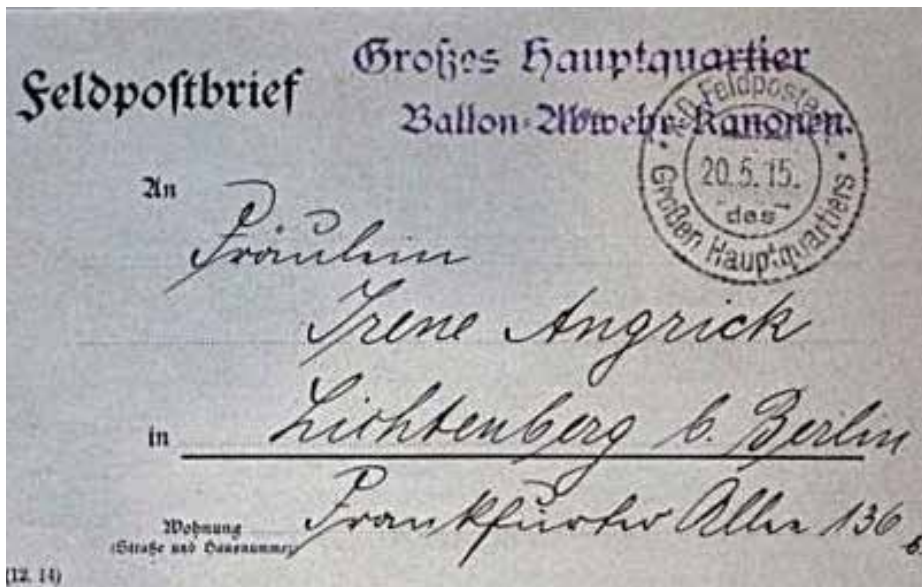 Feldpostbrief
Großes Hauptquartier
Ballon-Abwehr-Kanonen.
Kgl. Feldpostexp.
20.5.15.
des
Großen Hauptquartiers
An
Fräulein
Irene Angrick
in Lichtenberg b. Berlin
Wohnung
(Straße und Hausnummer)
Frankfurter Allee 136
(12. 14)